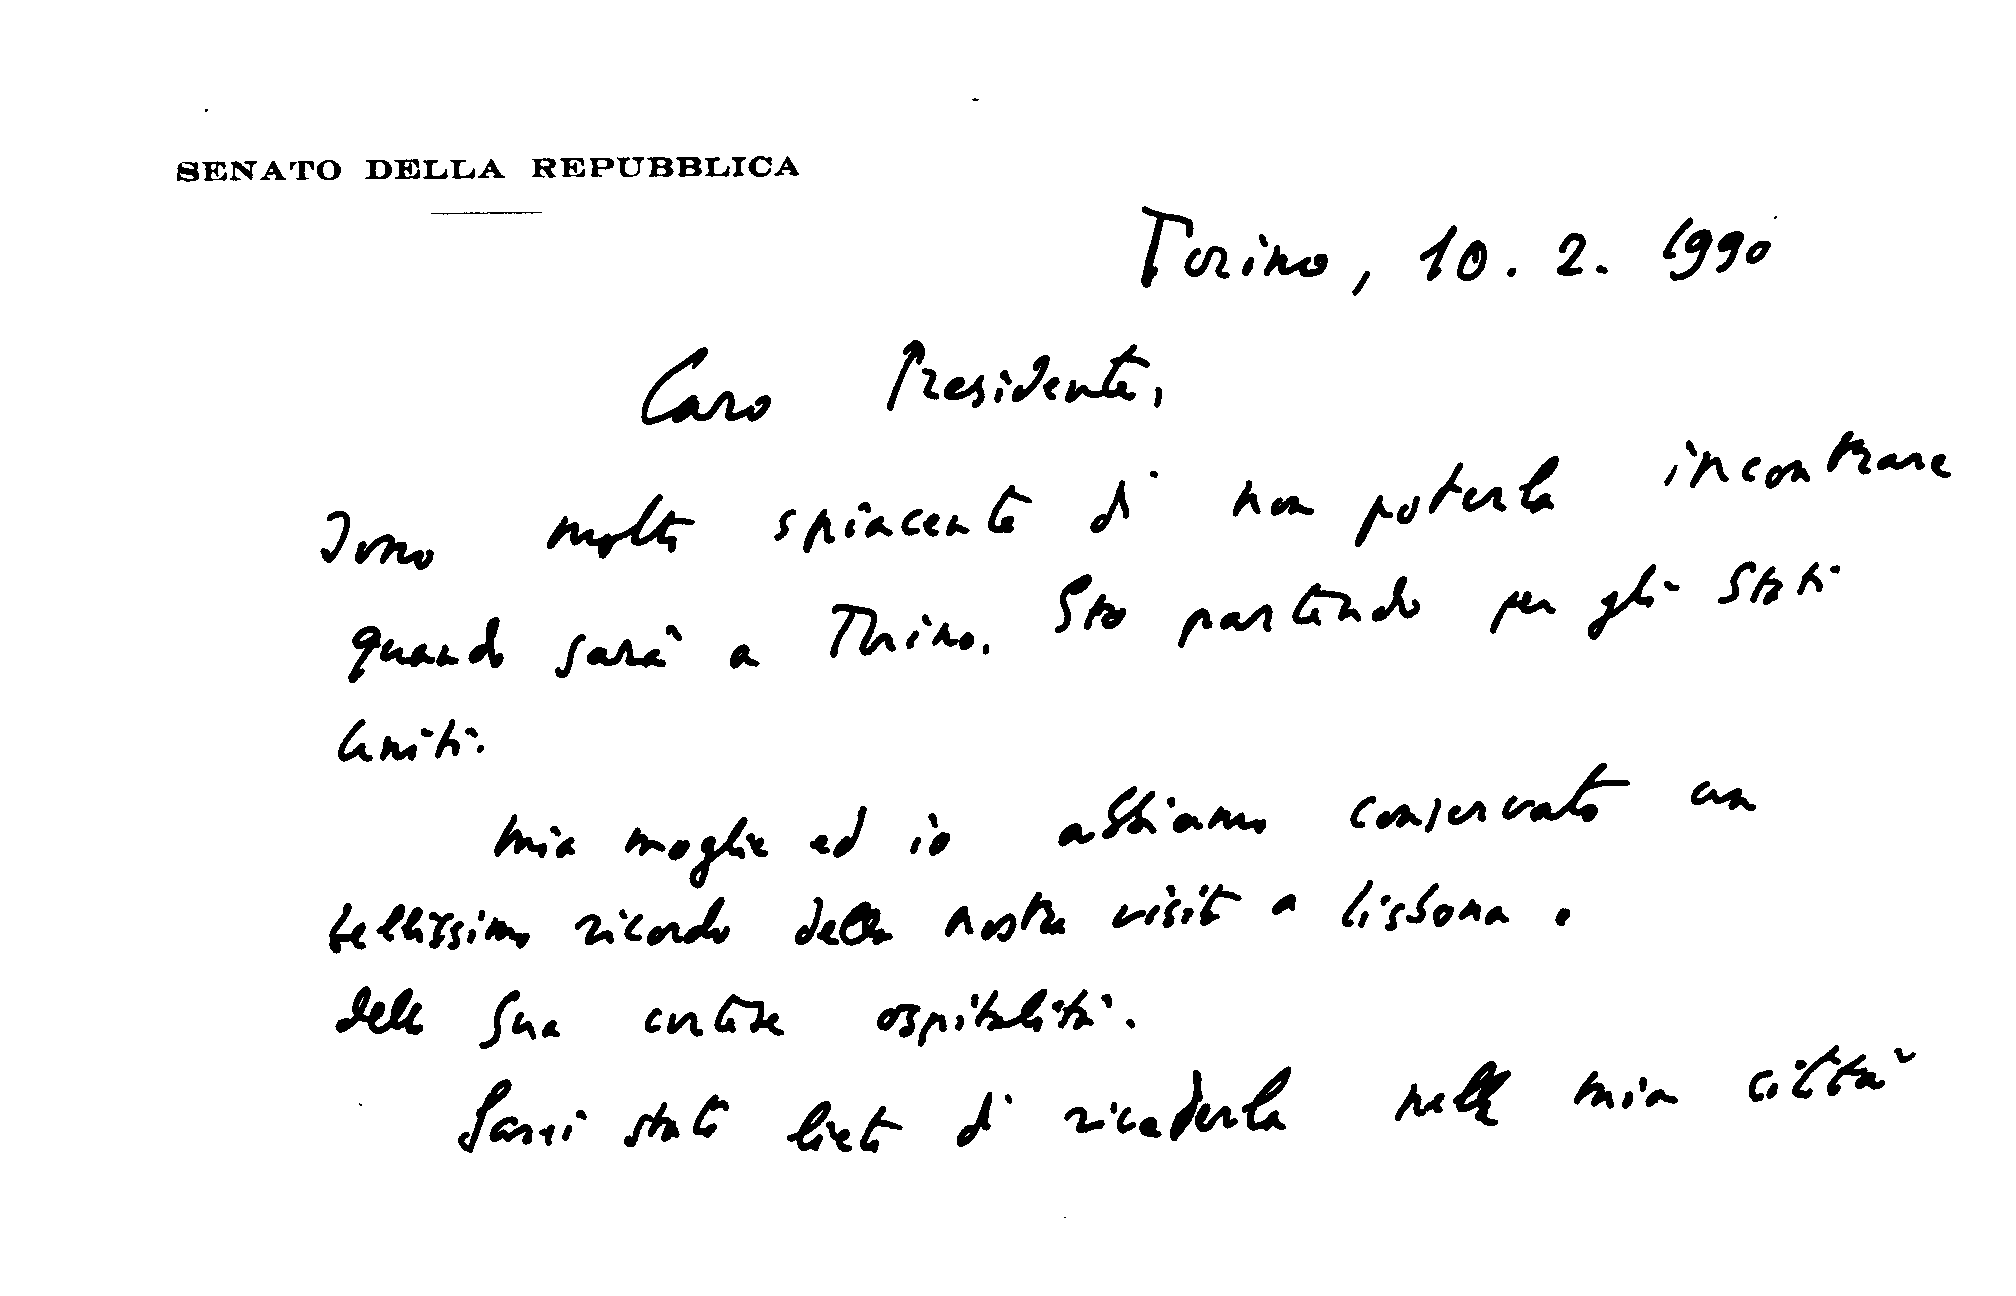 SENATO DELLA REPUBBLICA
Torino, 10. 2. 1990
Caro Presidente,
sono molto spiacente di non poterla incontrare
quando sarà a Torino. Sto partendo per gli Stati
Uniti.
Mia moglie ed io abbiamo conservato un
bellissimo ricordo della nostra visita a Lisbona e
della Sua cortese ospitalità.
Sarei stato lieto di rivederla nella mia città